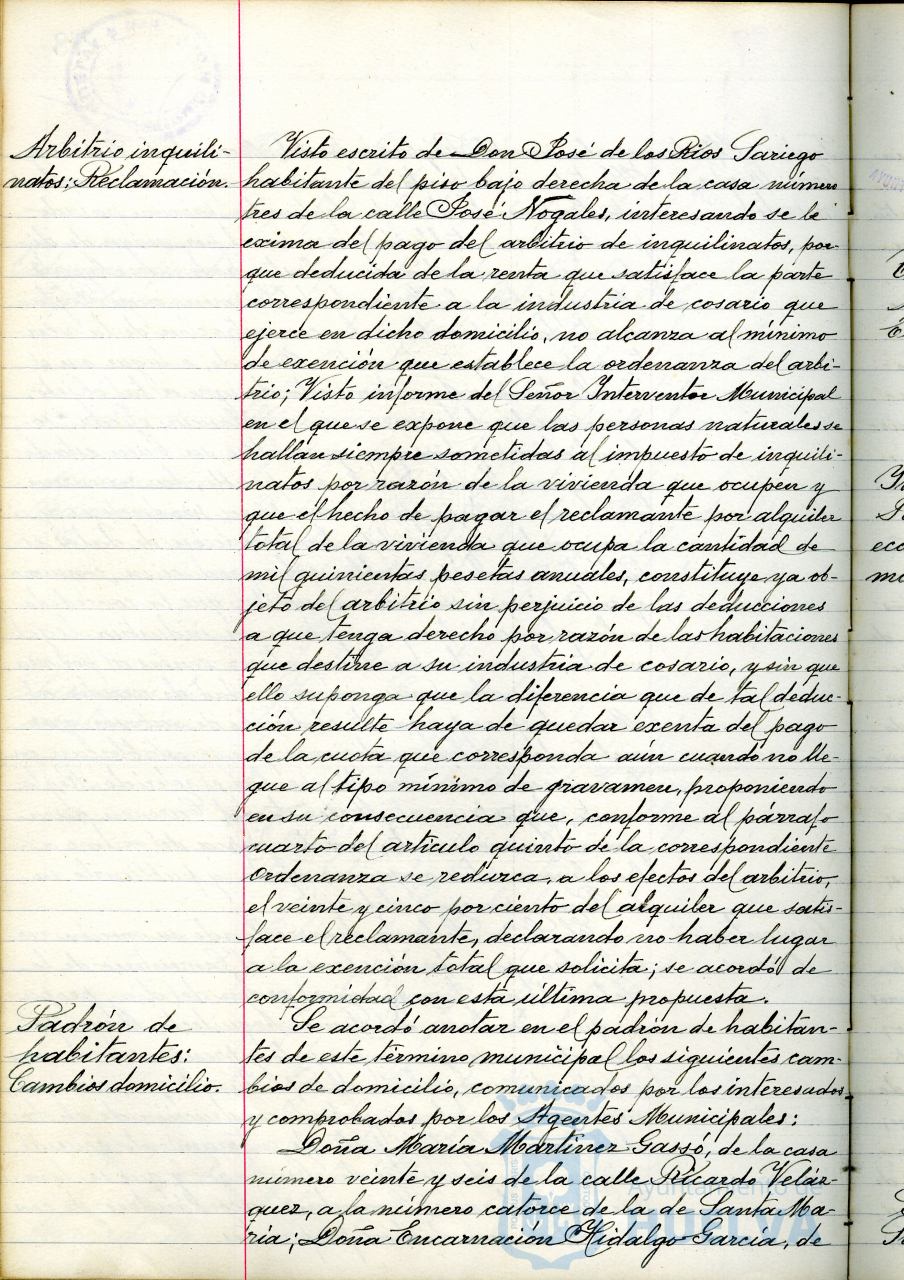 Arbitrio inquili-
natos; Reclamación.
Visto escrito de Don José de los Ríos Sariego
habitante del piso bajo derecha de la casa número
tres de la calle José Nogales, interesando se le
exima del pago del arbitrio de inquilinatos, por-
que deducida de la renta que satisface la parte
correspondiente a la industria de cosario que
ejerce en dicho domicilio, no alcanza al mínimo
de exención que establece la ordenanza del arbi-
trio; Visto informe del Señor Interventor Municipal
en el que se expone que las personas naturales se
hallan siempre sometidas al impuesto de inquili-
natos por razón de la vivienda que ocupen y
que el hecho de pagar el reclamante por alquiler
total de la vivienda que ocupa la cantidad de
mil quinientas pesetas anuales, constituye ya ob-
jeto del arbitrio sin perjuicio de las deducciones
a que tenga derecho por razón de las habitaciones
que destine a su industria de cosario, y sin que
ello suponga que la diferencia que de tal deduc-
ción resulte haya de quedar exenta del pago
de la cuota que corresponda aún cuando no lle-
gue al tipo mínimo de gravamen, proponiendo
en su consecuencia que, conforme al párrafo
cuarto del artículo quinto de la correspondiente
Ordenanza se reduzca, a los efectos del arbitrio,
el veinte y cinco por ciento del alquiler que satis-
face el reclamante, declarando no haber lugar
a la exención total que solicita; se acordó de
conformidad con esta última propuesta.
Padrón de
habitantes:
Cambios domicilio.
Se acordó anotar en el padrón de habitan-
tes de este término municipal los siguientes cam-
bios de domicilio, comunicados por los interesados
y comprobados por los Agentes Municipales:
Doña María Martínez Gassó, de la casa
número veinte y seis de la calle Ricardo Veláz-
quez, a la número catorce de la de Santa Ma-
ría; Doña Encarnación Hidalgo García, de
Ayuntamiento de
HUELVA